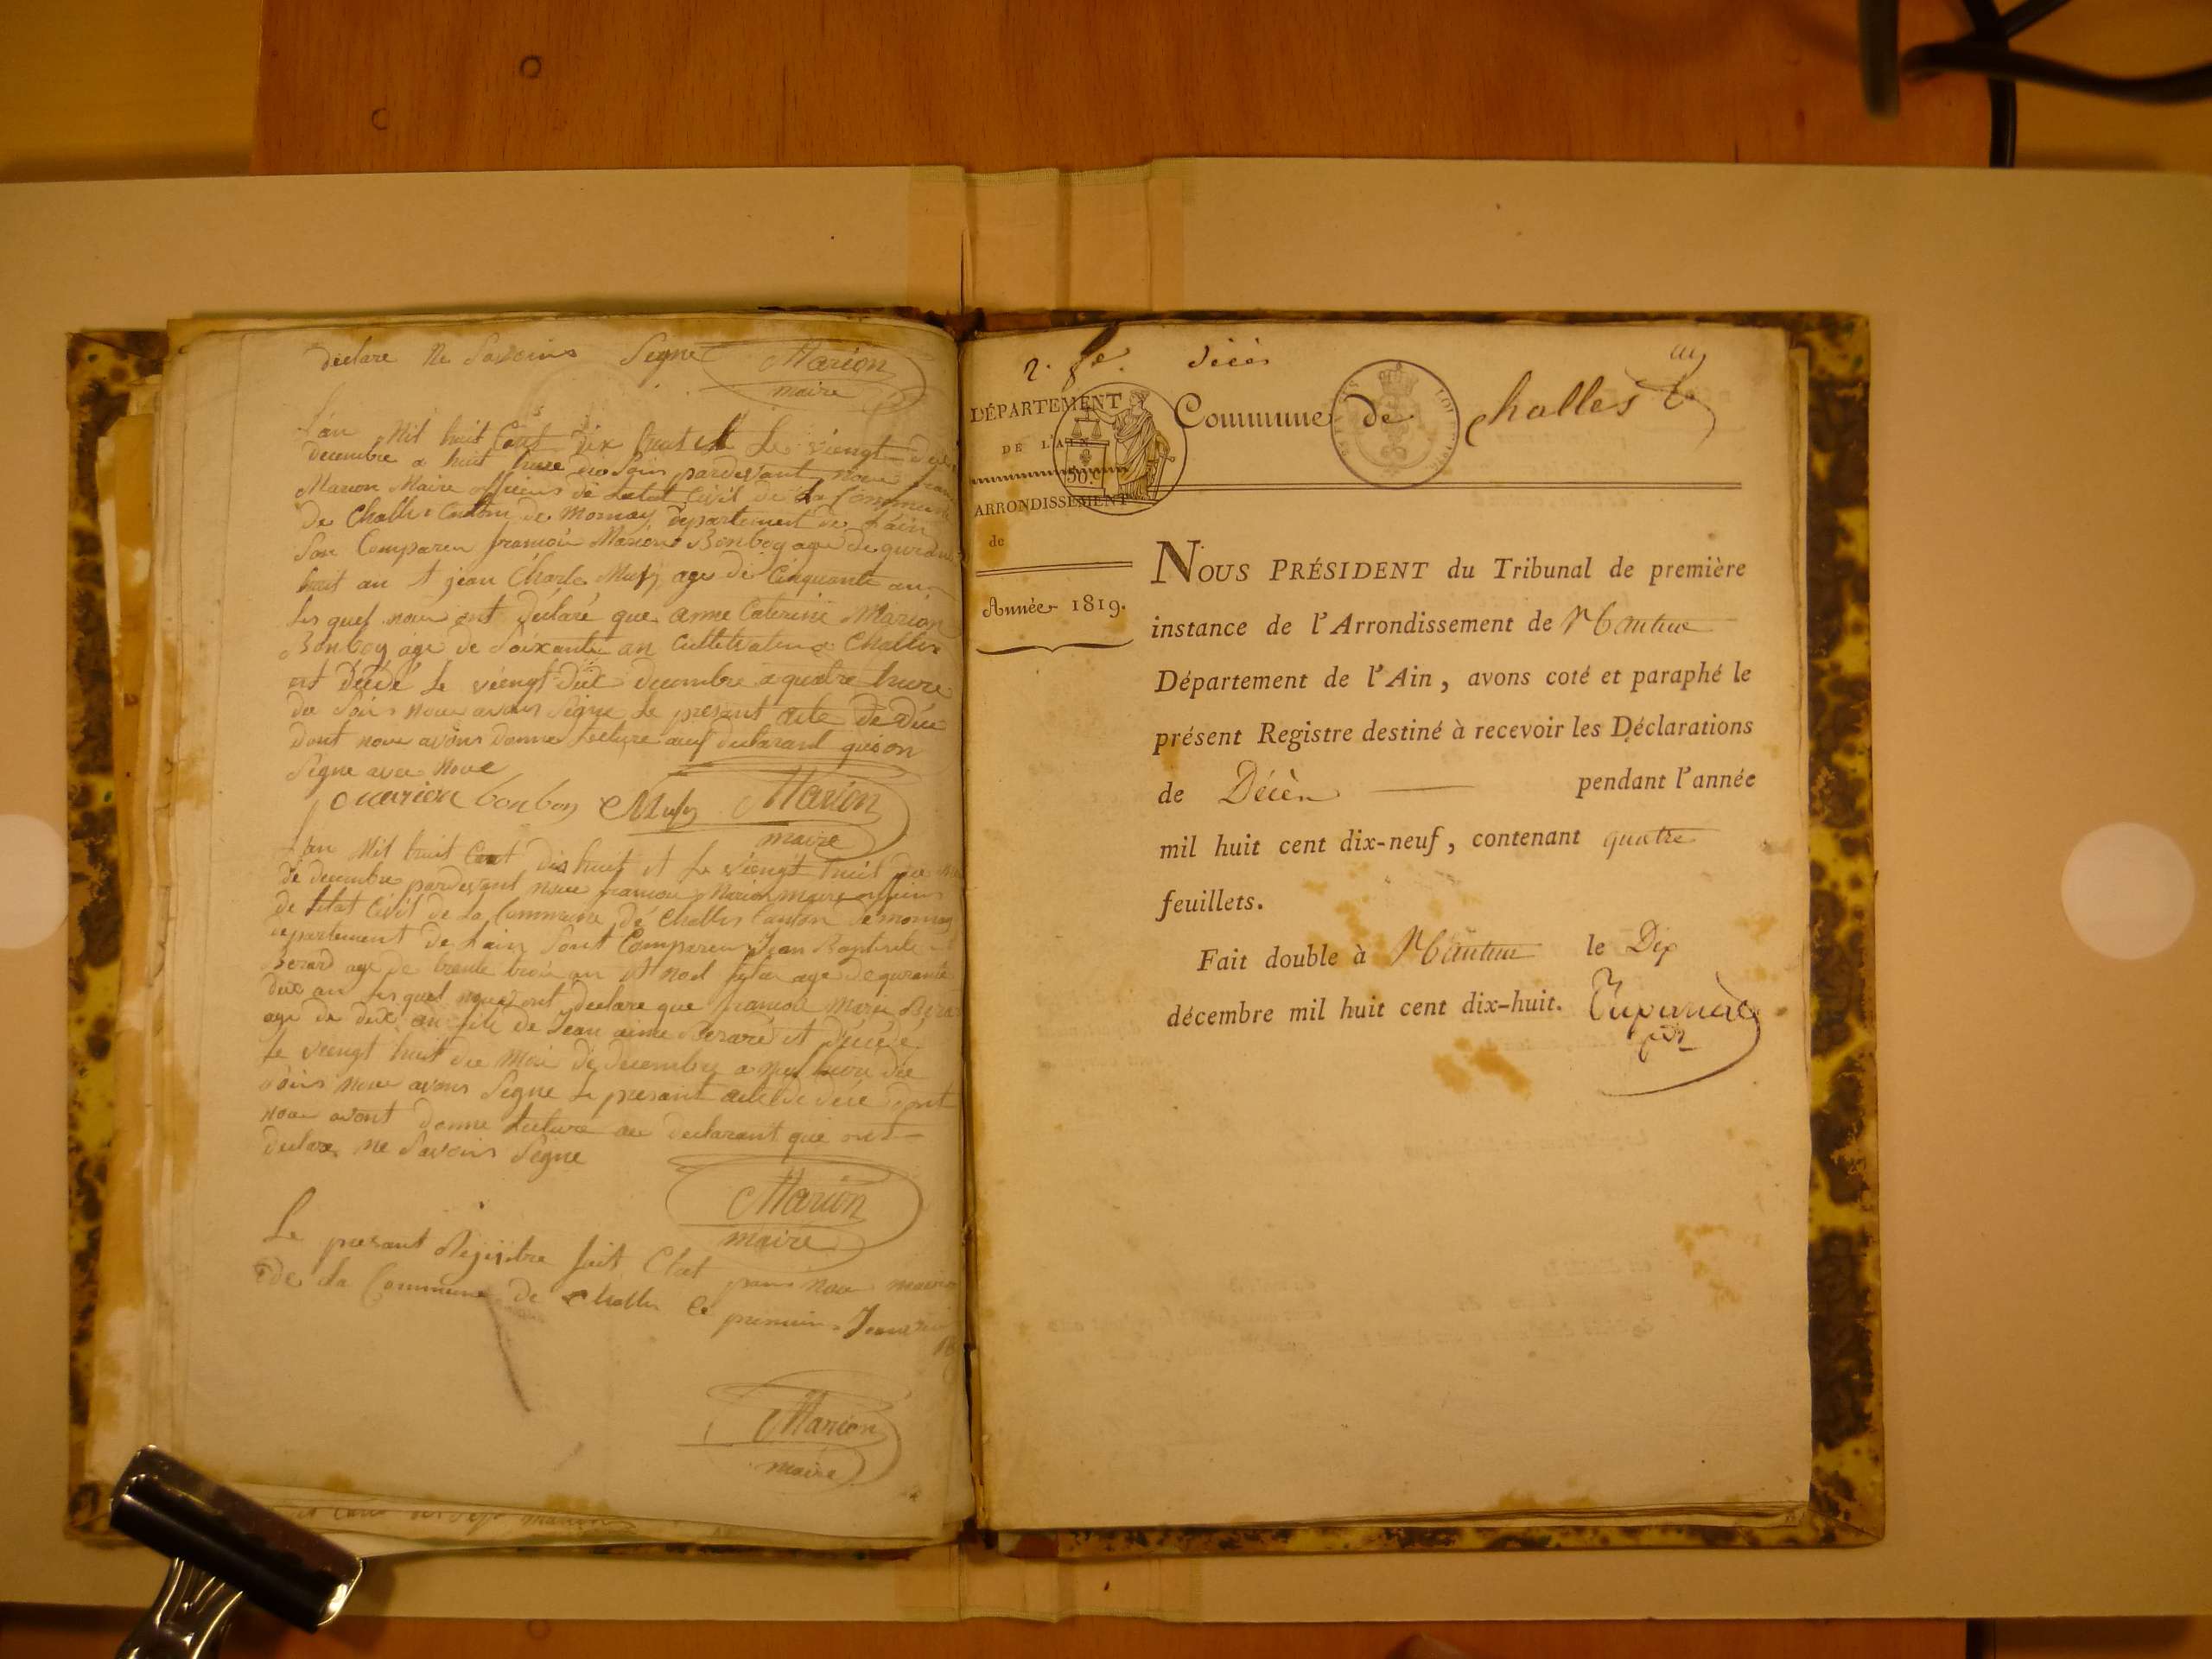 declare ne Savoirs Segne Marion
maire
L'an Mil huit Cent dix huit et Le viengt
decembre a huit hure du Soir pardevant nous
Marion Maire officiers de Letat Civil de La Commune
De Challes Canton de Mornay departement de Lain
Son Comparen francois Marion Bonboy age de
huit an et jean Charle age de Cinquante an
Les quel nous ont declaré que anne Caterine Marion
Bonboy age de Soixante an Cultivatur a Challes
et décédé Le viengt decembre a quatre hure
du Soir nous avons Segne Le present acte de
Dont nous avons donne Lecture declarant
Segne avec nous
Marion bonboy Marion
maire
L'an Mil huit Cent dix huit et Le viengt huit
de decembre pardevant nous francois Marion maire officiers
de Letat Civil de La Commune de Challes Canton de mornay
departement de Lain Sont Comparen Jean Baptiste
Berard age de trente trois an et noel age de
an Les quel nous ont declare que francois marie
age de an fils de Jean aime Berard et décédé
Le viengt huit du Mois de decembre a hure du
Soir nous avons Segne Le presant acte de dont
nous avont donne Lecture au declarant que ont
declare ne Savoirs Segne
Marion
maire
Le presant Registre fait Clot par nous maire
de La Commune de Challes Ce premier
Marion
maire
2. décès
DÉPARTEMENT
DE L'AIN
50.
ARRONDISSEMENT
de
Année 1819.
Commune de Challes
NOUS PRÉSIDENT du Tribunal de première
instance de l'Arrondissement de Nantua
Département de l'Ain, avons coté et paraphé le
présent Registre destiné à recevoir les Déclarations
de Décès pendant l'année
mil huit cent dix-neuf, contenant quatre
feuillets.
Fait double à Nantua le Dix
décembre mil huit cent dix-huit.